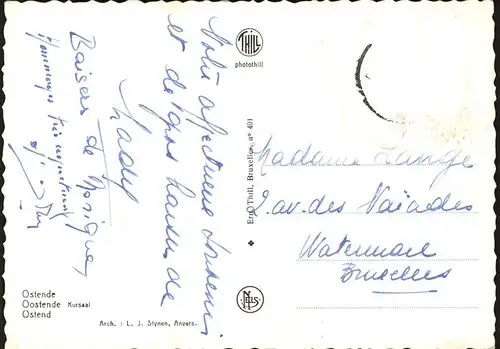 Notre affectueux souvenir
et de gros baisers de
Nadef
Baisers de Monique,
Hommages très respectueux
THILL
photothill
Ern. Thill, Bruxelles, n° 401
NELS
Madame Lange
2 av. des Naïades
Watermael
Bruxelles
Ostende
Oostende Kursaal
Ostend
Arch. : L. J. Stynen, Anvers.